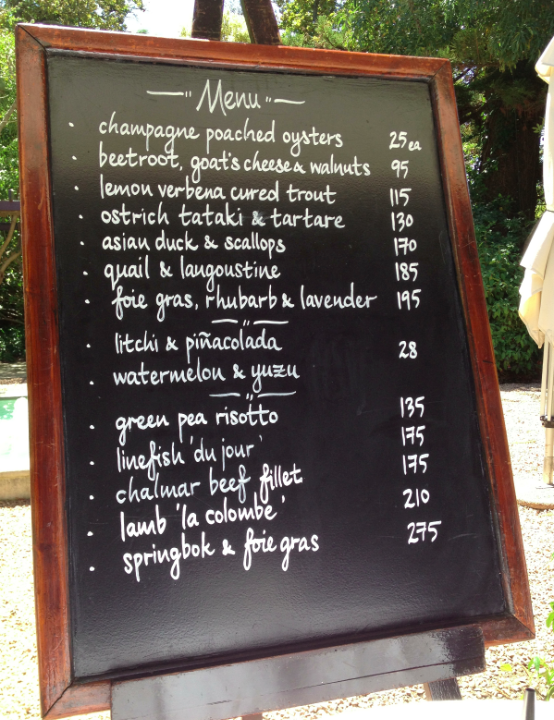 Menu
· champagne poached oysters 25 ea
· beetroot, goat's cheese & walnuts 95
· lemon verbena cured trout 115
· ostrich tataki & tartare 130
· asian duck & scallops 170
· quail & langoustine 185
· foie gras, rhubarb & lavender 195
· litchi & piñacolada 28
· watermelon & yuzu
· green pea risotto 135
· linefish 'du jour' 175
· chalmar beef fillet 175
· lamb 'la colombe' 210
· springbok & foie gras 275